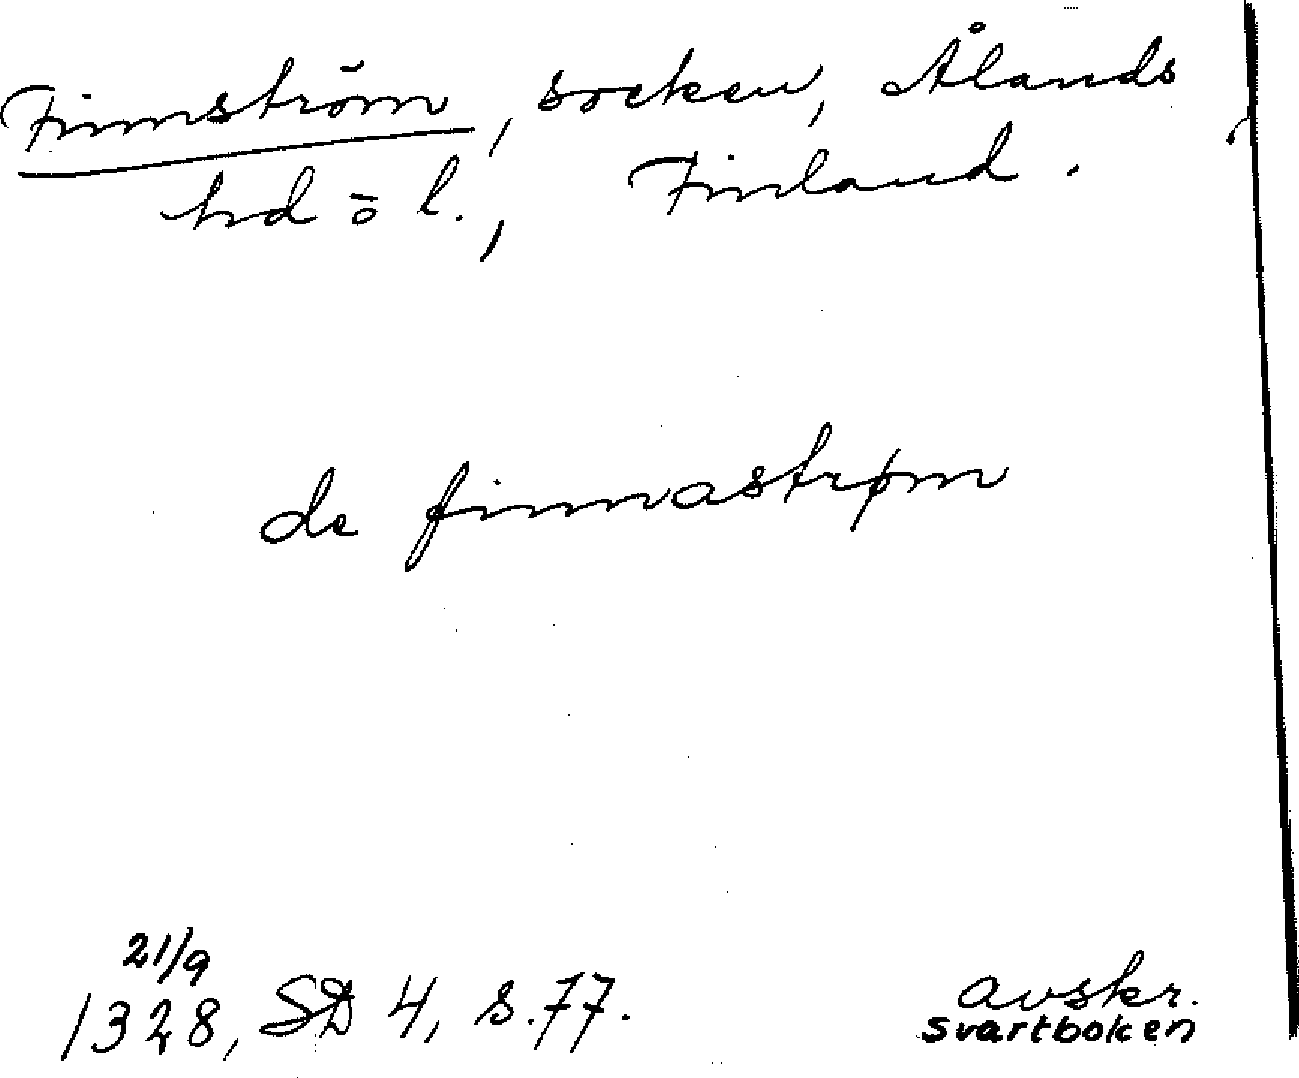 Finnström, socken, Ålands
hd o l., Finland.
de finnastrøm
21/9
1328, SD 4, s. 77.
avskr.
svartboken